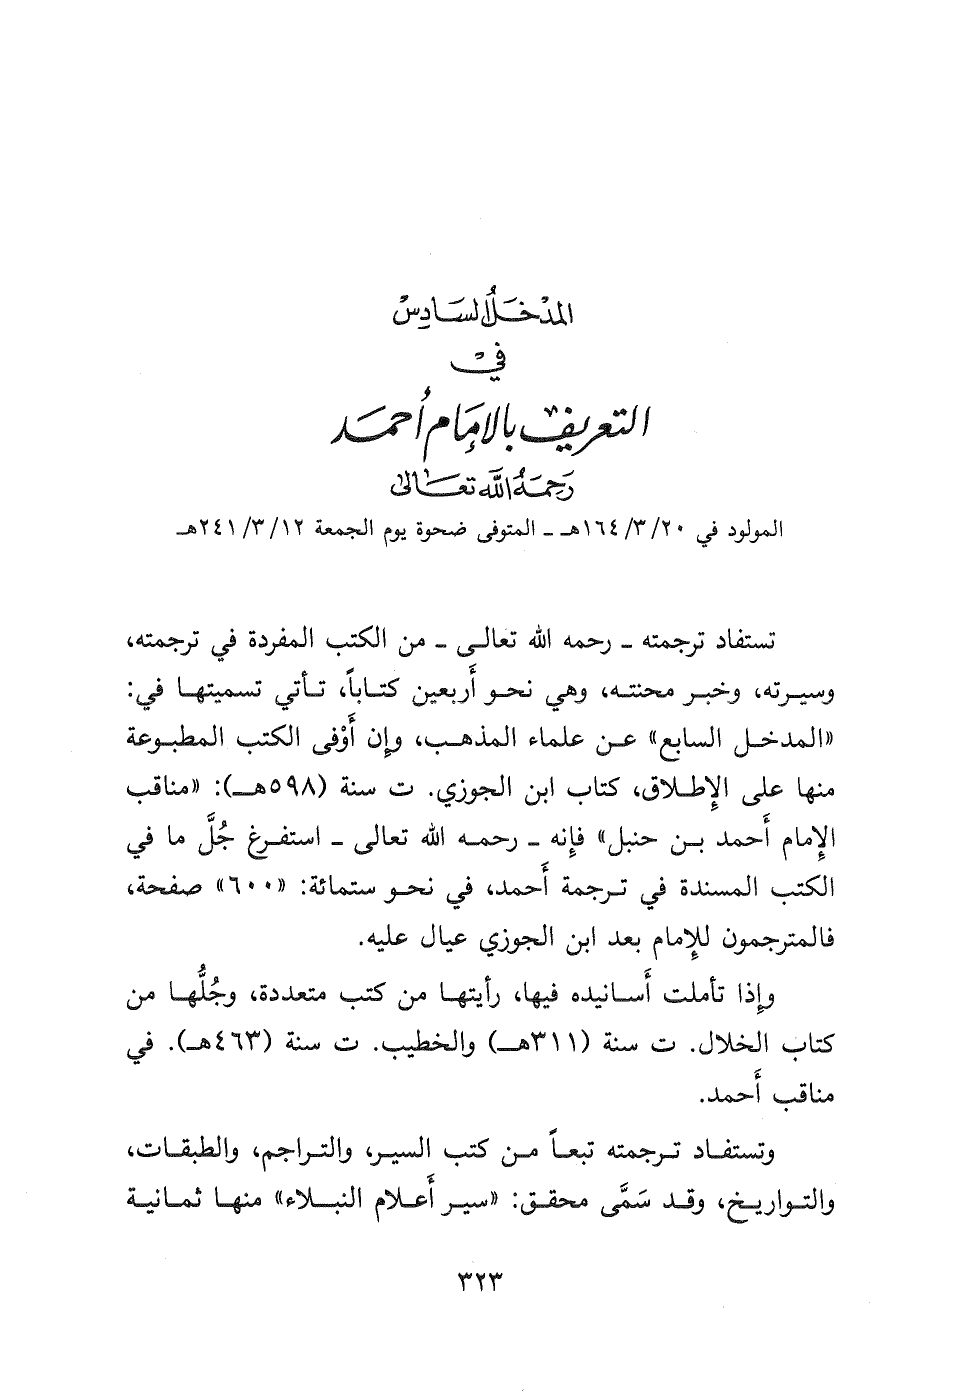 المدخل السادس
في
التعريف بالإمام أحمد
رحمه الله تعالى
المولود في ٢٠/٣/١٦٤هـ ـ المتوفى ضحوة يوم الجمعة ٢٤١/٣/١٢هـ
تستفاد ترجمته ـ رحمه الله تعالى ـ من الكتب المفردة في ترجمته،
وسيرته، وخبر محنته، وهي نحو أربعين كتاباً، تأتي تسميتها في:
«المدخل السابع» عن علماء المذهب، وإن أوْفى الكتب المطبوعة
منها على الإطلاق، كتاب ابن الجوزي. ت سنة (٥٩٨هـ): «مناقب
الإمام أحمد بن حنبل» فإنه ـ رحمه الله تعالى ـ استفرغ جُلَّ ما في
الكتب المسندة في ترجمة أحمد، في نحو ستمائة: «٦٠٠» صفحة،
فالمترجمون للإمام بعد ابن الجوزي عيال عليه.
وإذا تأملت أسانيده فيها، رأيتها من كتب متعددة، وجُلُّها من
كتاب الخلال. ت سنة (٣١١هـ) والخطيب. ت سنة (٤٦٣هـ). في
مناقب أحمد.
وتستفاد ترجمته تبعاً من كتب السير، والتراجم، والطبقات،
والتواريخ، وقد سَمَّى محقق: «سير أعلام النبلاء» منها ثمانية
٣٢٣